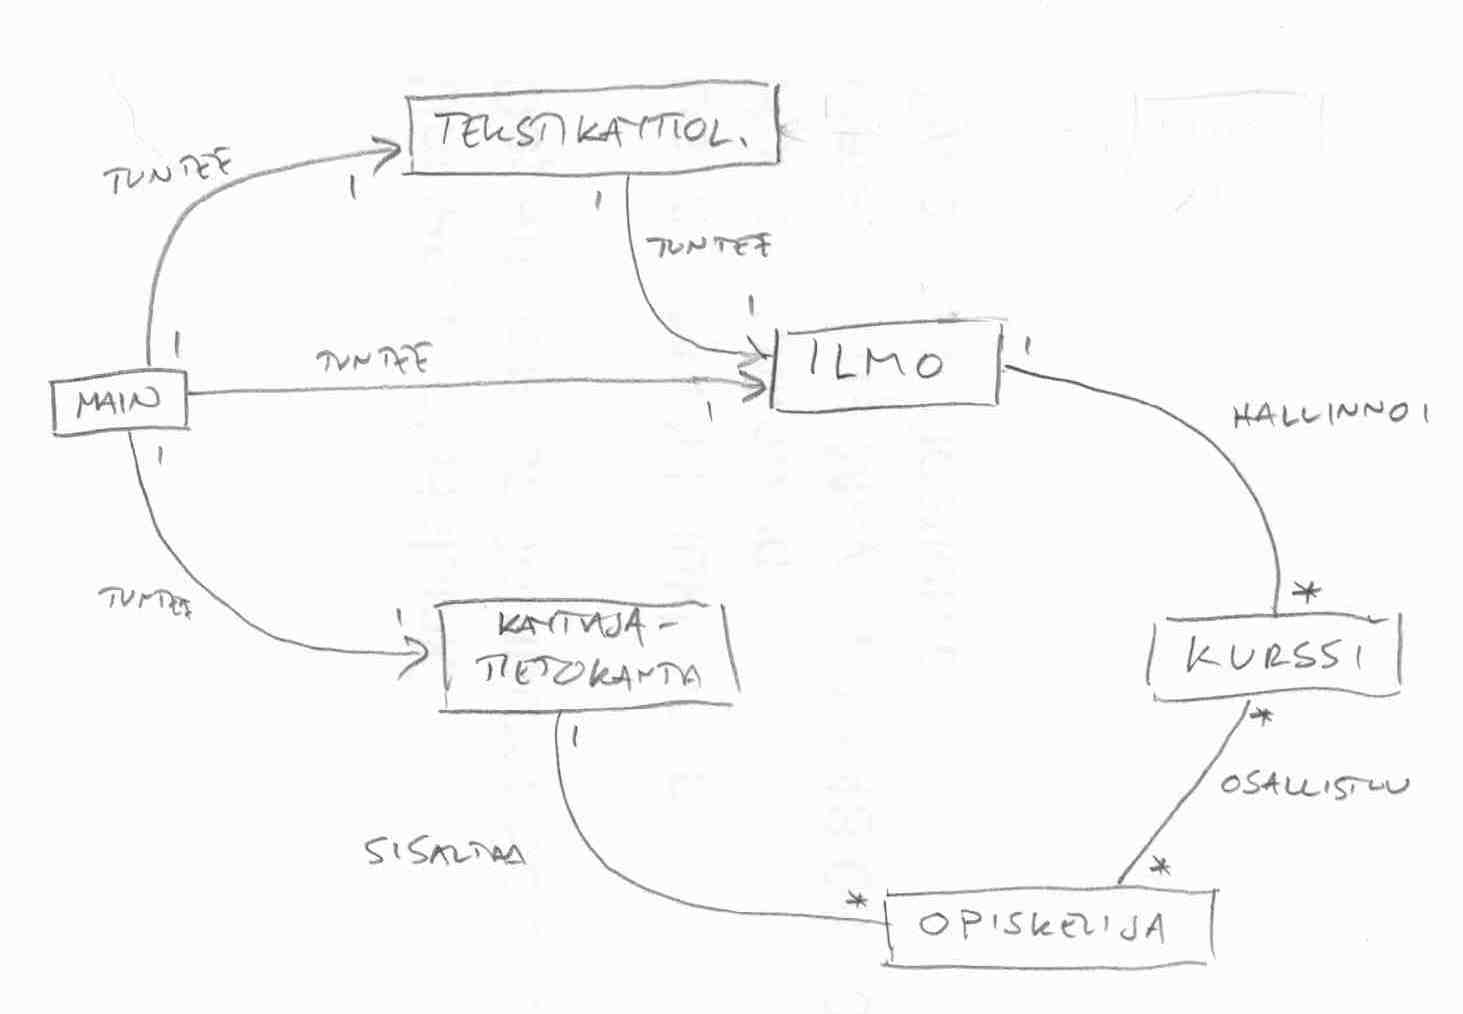 TEKSTIKAYTTOL.
TUNTEE
1
1
TUNTEE
1
1
TUNTEE
ILMO
1
MAIN
1
HALLINNOI
1
TUNTEE
1
*
KAYTTAJA-
TIETOKANTA
KURSSI
1
*
OSALLISTUU
SISALTAA
*
*
OPISKELIJA